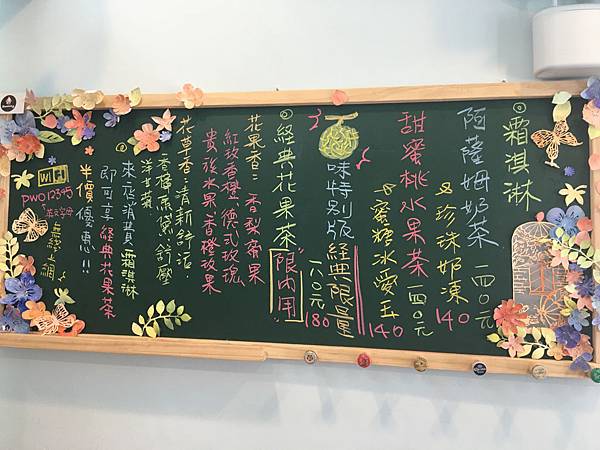 ◎霜淇淋
阿薩姆奶茶 一四○元
&珍珠奶凍 140
甜蜜桃水果茶 一四○元
&蜜糖冰愛玉 140
味特別版 經典限量
一八○元 180
◎經典花果茶 限內用
花果香:香梨蘋果
紅玫香橙、德式玫瑰
貴族水果、香橙玫果
花草香:清新舒活
洋甘菊
來店消費霜淇淋
即可享經典花果茶
半價優惠!!
wifi
pw012345
無線上網